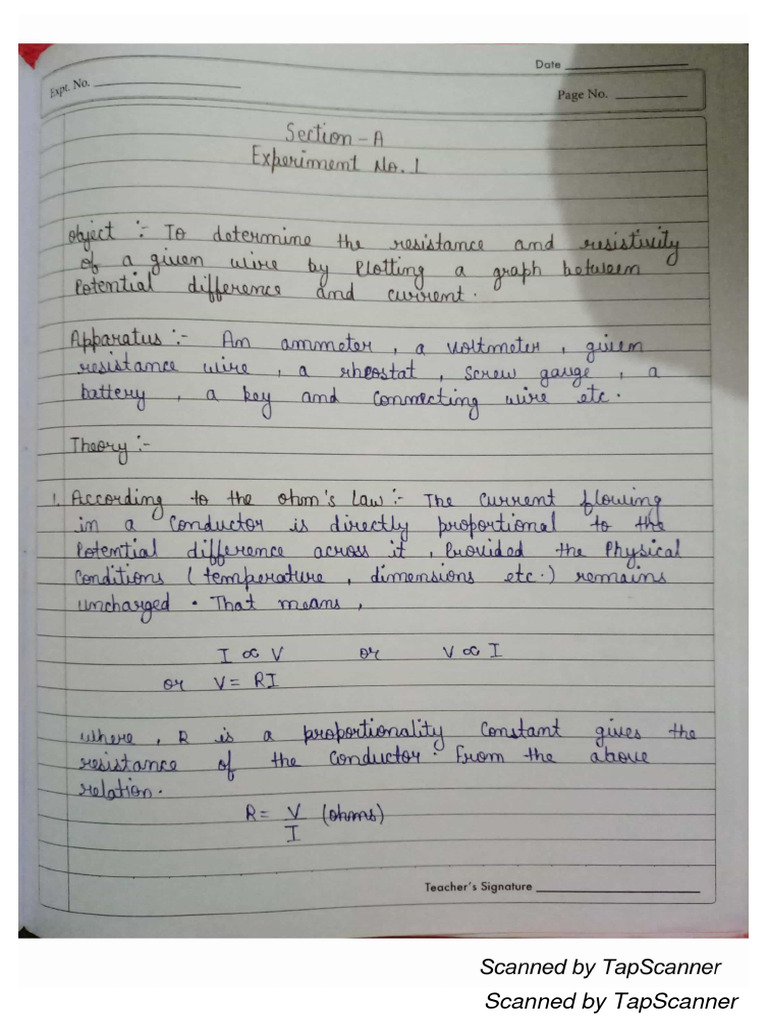 Date
Expt. No.
Page No.
Section - A
Experiment No. 1
Object :- To determine the resistance and resistivity
of a given wire by Plotting a graph between
Potential difference and current.
Apparatus :- An ammeter, a voltmeter, given
resistance wire, a rheostat, screw gauge, a
battery, a key and connecting wire etc.
Theory :-
1. According to the ohm's Law :- The current flowing
in a conductor is directly proportional to the
Potential difference across it, Provided the Physical
Conditions (temperature, dimensions etc.) remains
uncharged. That means,
I ∝ V or V ∝ I
or V = RI
where, R is a proportionality constant gives the
resistance of the conductor. From the above
relation.
R = V/I (ohms)
Teacher's Signature
Scanned by TapScanner
Scanned by TapScanner